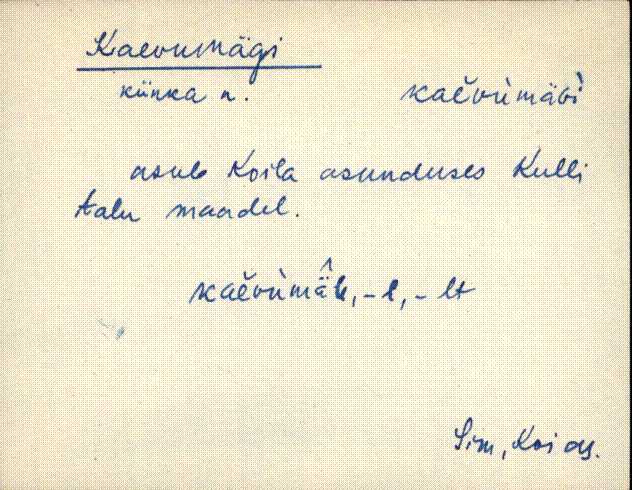 Kaevumägi
künka n. kaĕvùmäɢì
asub Koila asunduses Kulli
talu maadel.
kaĕvùmä̂le, -l, -lt
Sim, Koi as.